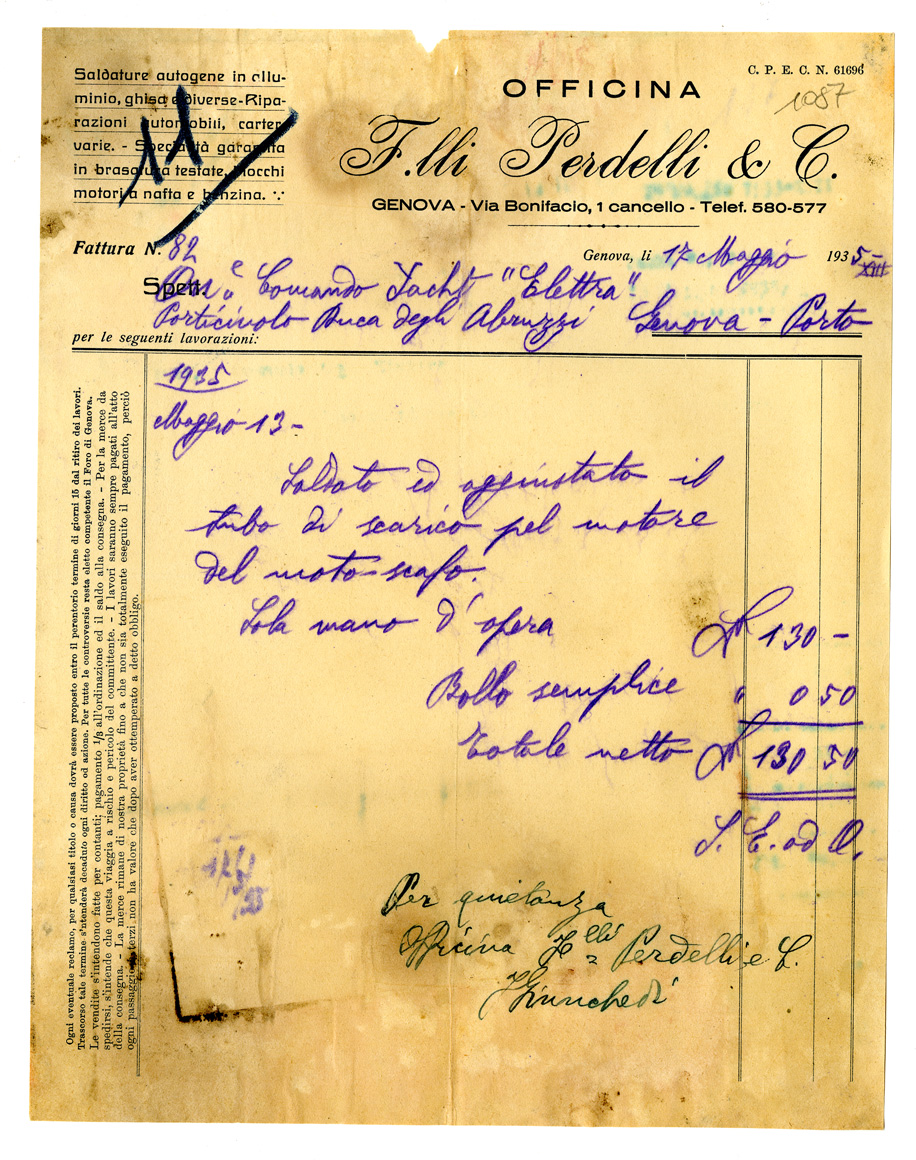 Saldature autogene in allu-
minio, ghisa e diverse-Ripa-
razioni automobili, carter
varie. - Specialità garantita
in brasatura testate, blocchi
motori a nafta e benzina.
11
C. P. E. C. N. 61696
1087
OFFICINA
F.lli Perdelli & C.
GENOVA - Via Bonifacio, 1 cancello - Telef. 580-577
Fattura N. 82
Genova, li 17 Maggio 1935 - XIII
Spett. Comando Yacht "Elettra"
Porticciolo Duca degli Abruzzi Genova - Porto
per le seguenti lavorazioni:
1935
Maggio 13 -
Saldato ed aggiustato il
tubo di scarico pel motore
del moto-scafo.
Sola mano d'opera 130 -
Bollo semplice " 0 50
Totale netto 130 50
S. E. od O.
Per quietanza
Officina F.lli Perdelli e C.
Ogni eventuale reclamo, per qualsiasi titolo o causa dovrà essere proposto entro il perentorio termine di giorni 15 dal ritiro dei lavori.
Trascorso tale termine s'intenderà decaduto ogni diritto ed azione. Per tutte le controversie resta eletto competente il Foro di Genova.
Le vendite s'intendono fatte per contanti; pagamento 1/3 all'ordinazione ed il saldo alla consegna. - Per la merce da
spedirsi, s'intende che questa viaggia a rischio e pericolo del committente. - I lavori saranno sempre pagati all'atto
della consegna. - La merce rimane di nostra proprietà fino a che non sia totalmente eseguito il pagamento, perciò
ogni passaggio a terzi non ha valore che dopo aver ottemperato a detto obbligo.